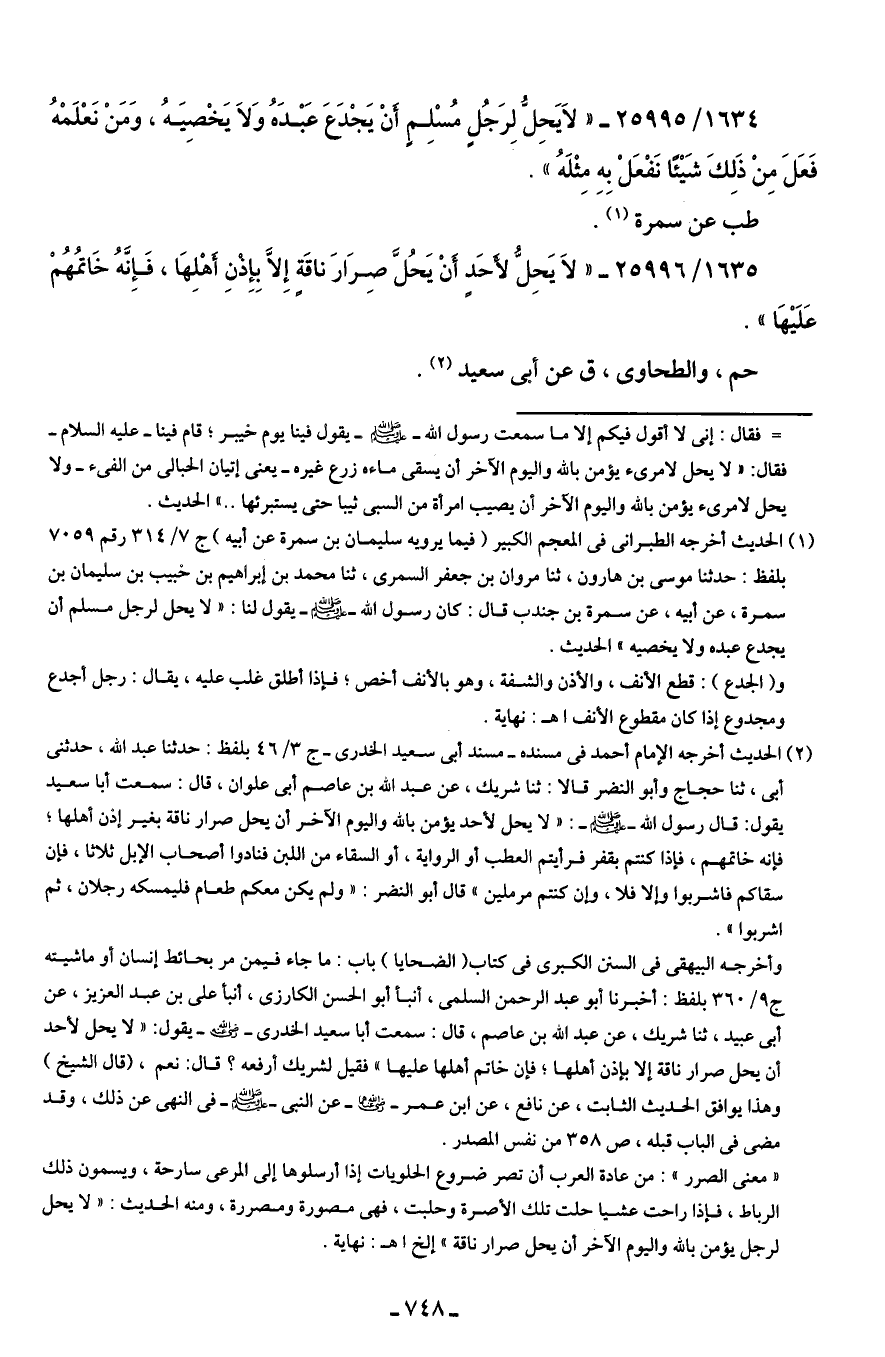 ١٦٣٤/ ٢٥٩٩٥ ـ « لاَيَحِلُّ لِرَجُلٍ مُسْلِمٍ أَنْ يَجْدَعَ عَبْدَهُ وَلاَ يَخْصِيَهُ ، وَمَنْ نَعْلَمْهُ
فَعَلَ مِنْ ذَلِكَ شَيْئًا نَفْعَلْ بِهِ مِثْلَهُ » .
طب عن سمرة (١) .
١٦٣٥/ ٢٥٩٩٦ ـ « لاَ يَحِلُّ لأَحَدٍ أَنْ يَحُلَّ صِرَارَ نَاقَةٍ إِلاَّ بِإِذْنِ أَهْلِهَا ، فَإِنَّهُ خَاتَمُهُمْ
عَلَيْهَا » .
حم ، والطحاوى ، ق عن أبى سعيد (٢) .
= فقال : إنى لا أقول فيكم إلا ما سمعت رسول الله ـ ﷺ ـ يقول فينا يوم خيبر ؛ قام فينا ـ عليه السلام ـ
فقال: « لا يحل لامرىء يؤمن بالله واليوم الآخر أن يسقى ماءه زرع غيره ـ يعنى إتيان الحبالى من الفىء ـ ولا
يحل لامرىء يؤمن بالله واليوم الآخر أن يصيب امرأة من السبى ثيبا حتى يستبرئها ..» الحديث .
(١) الحديث أخرجه الطبرانى فى المعجم الكبير ( فيما يرويه سليمان بن سمرة عن أبيه ) ج ٧/ ٣١٤ رقم ٧٠٥٩
بلفظ : حدثنا موسى بن هارون ، ثنا مروان بن جعفر السمرى ، ثنا محمد بن إبراهيم بن خبيب بن سليمان بن
سمرة ، عن أبيه ، عن سمرة بن جندب قال : كان رسول الله ـ ﷺ ـ يقول لنا : « لا يحل لرجل مسلم أن
يجدع عبده ولا يخصيه » الحديث .
و( الجدع ) : قطع الأنف ، والأذن والشفة ، وهو بالأنف أخص ؛ فإذا أطلق غلب عليه ، يقال : رجل أجدع
ومجدوع إذا كان مقطوع الأنف ا هـ : نهاية .
(٢) الحديث أخرجه الإمام أحمد فى مسنده ـ مسند أبى سعيد الخدرى ـ ج ٣/ ٤٦ بلفظ : حدثنا عبد الله ، حدثنى
أبى ، ثنا حجاج وأبو النضر قالا : ثنا شريك ، عن عبد الله بن عاصم أبى علوان ، قال : سمعت أبا سعيد
يقول: قال رسول الله ـ ﷺ ـ : « لا يحل لأحد يؤمن بالله واليوم الآخر أن يحل صرار ناقة بغير إذن أهلها ؛
فإنه خاتمهم ، فإذا كنتم بقفر فرأيتم العطب أو الرواية ، أو السقاء من اللبن فنادوا أصحاب الإبل ثلاثا ، فإن
سقاكم فاشربوا وإلا فلا ، وإن كنتم مرملين » قال أبو النضر : « ولم يكن معكم طعام فليمسكه رجلان ، ثم
اشربوا » .
وأخرجه البيهقى فى السنن الكبرى فى كتاب( الضحايا ) باب : ما جاء فيمن مر بحائط إنسان أو ماشيته
ج٩/ ٣٦٠ بلفظ : أخبرنا أبو عبد الرحمن السلمى ، أنبأ أبو الحسن الكارزى ، أنبأ على بن عبد العزيز ، عن
أبى عبيد ، ثنا شريك ، عن عبد الله بن عاصم ، قال : سمعت أبا سعيد الخدرى ـ رضي الله عنه ـ يقول: « لا يحل لأحد
أن يحل صرار ناقة إلا بإذن أهلها ؛ فإن خاتم أهلها عليها » فقيل لشريك أرفعه ؟ قال: نعم ، (قال الشيخ )
وهذا يوافق الحديث الثابت ، عن نافع ، عن ابن عمر ـ رضي الله عنهما ـ عن النبى ـ ﷺ ـ فى النهى عن ذلك ، وقد
مضى فى الباب قبله ، ص ٣٥٨ من نفس المصدر .
« معنى الصرر » : من عادة العرب أن تصر ضروع الحلوبات إذا أرسلوها إلى المرعى سارحة ، ويسمون ذلك
الرباط ، فإذا راحت عشيا حلت تلك الأصرة وحلبت ، فهى مصورة ومصررة ، ومنه الحديث : « لا يحل
لرجل يؤمن بالله واليوم الآخر أن يحل صرار ناقة » إلخ ا هـ : نهاية .
ـ ٧٤٨ ـ